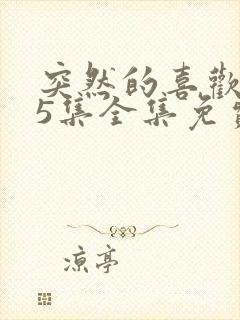 突然的喜歡
5集全集免
凉亭